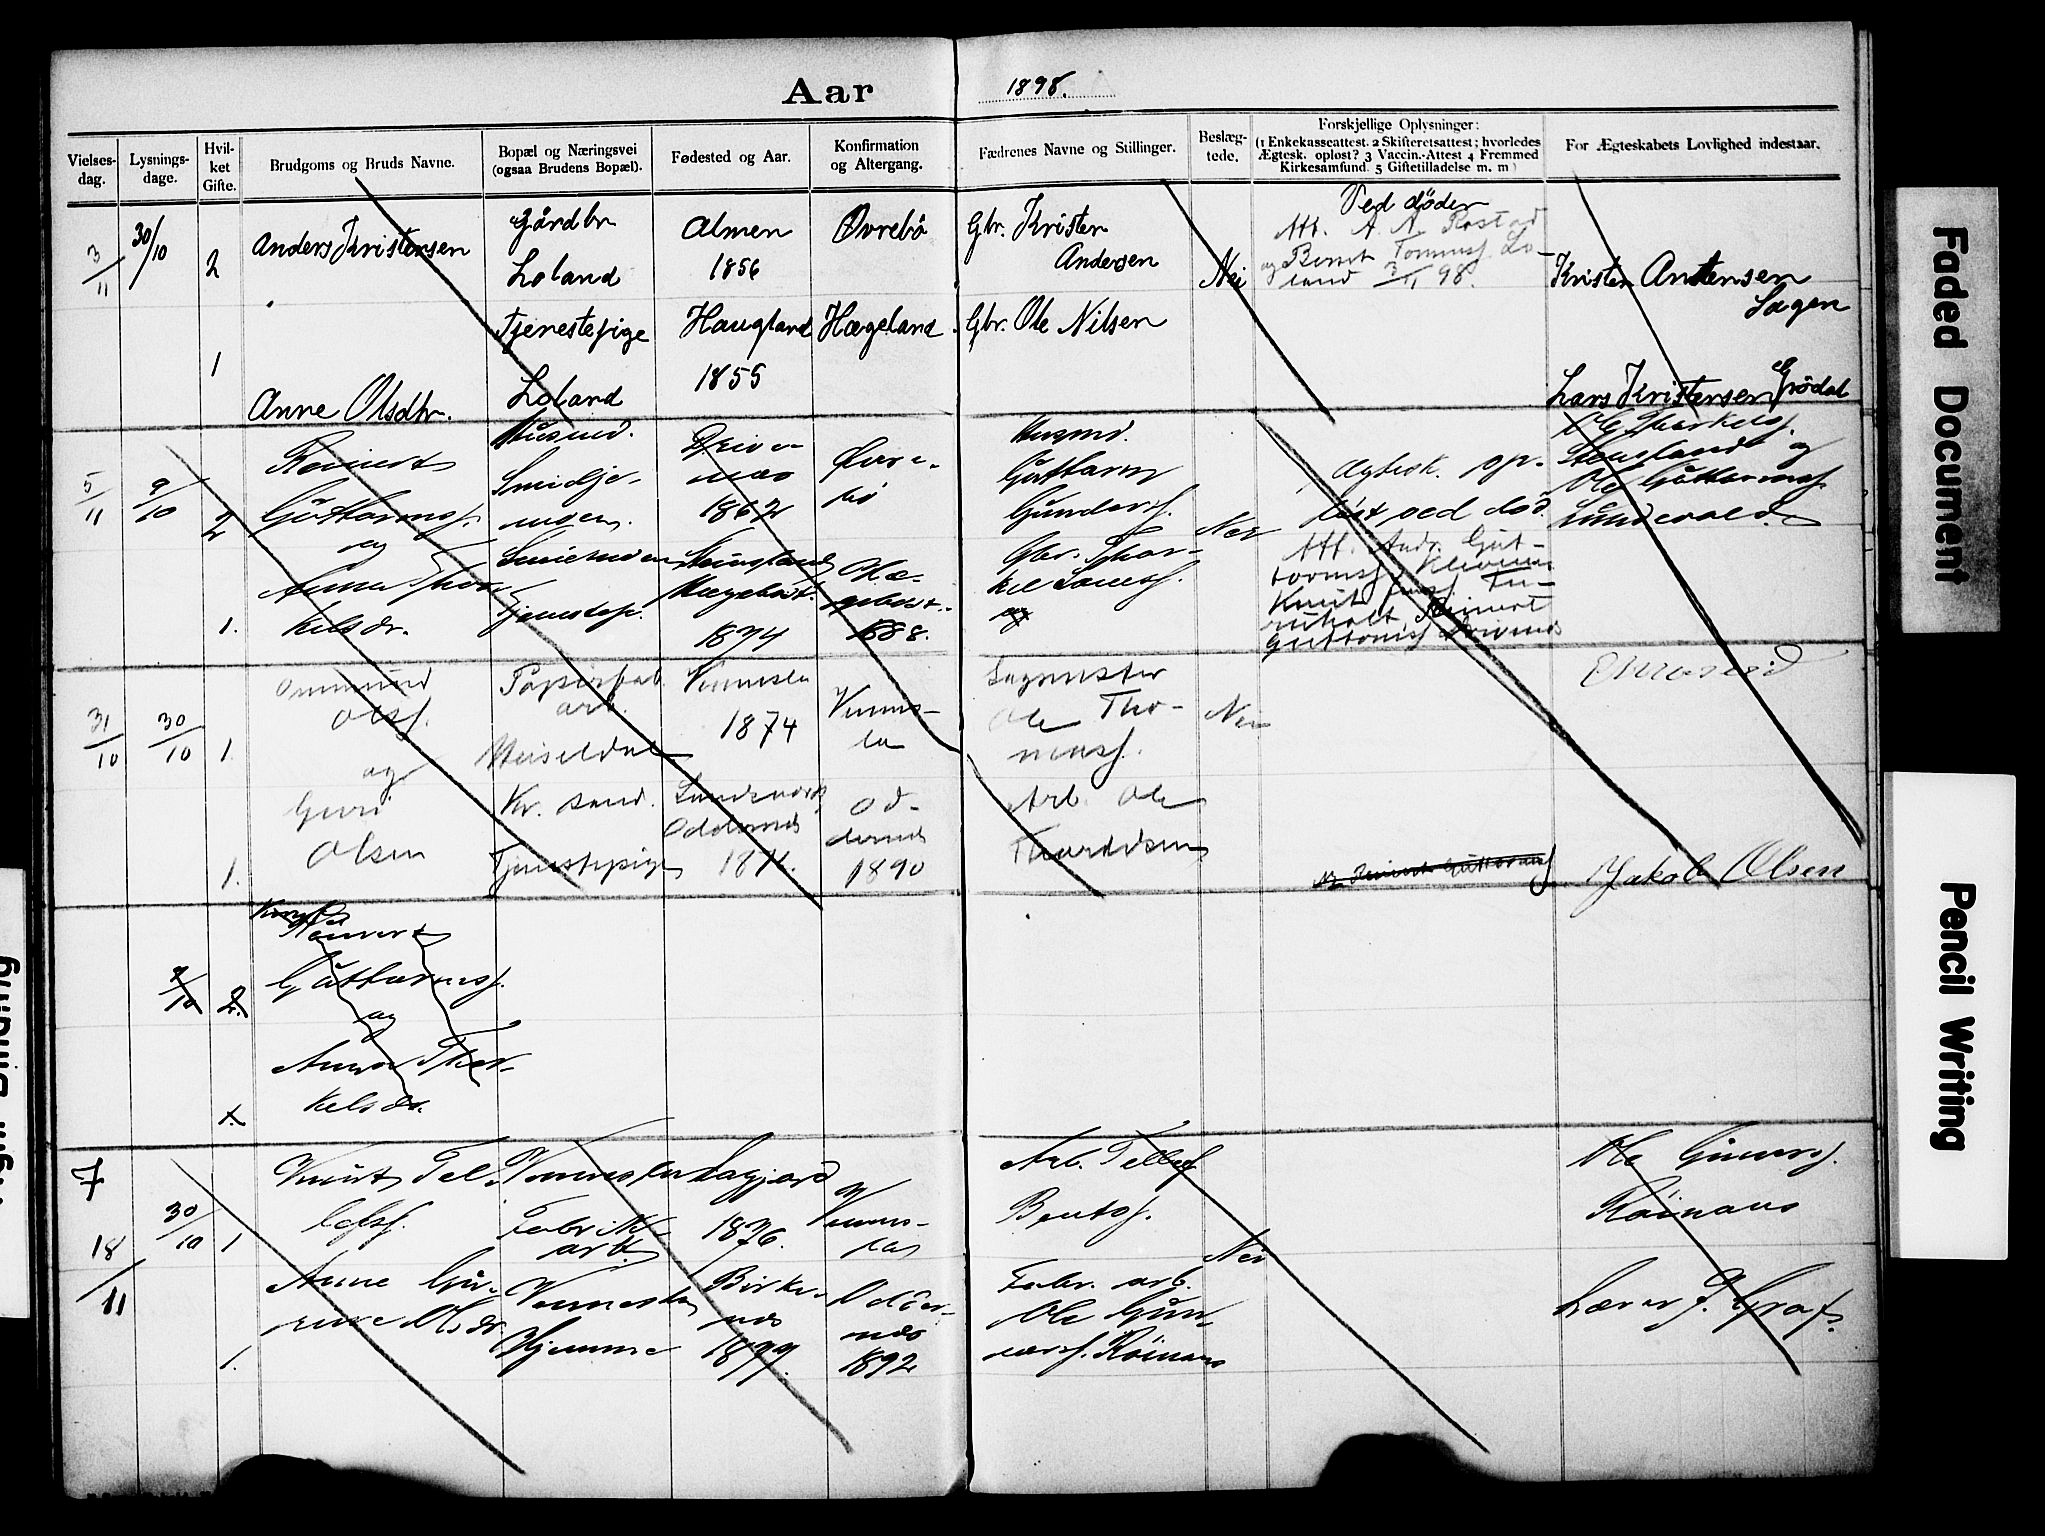 Aar 1898.
Vielses-dag.
Lysnings-dage.
Hvil-ket Gifte.
Brudgoms og Bruds Navne.
Bopæl og Næringsvei (ogsaa Brudens Bopæl).
Fødested og Aar.
Konfirmation og Altergang.
Fædrenes Navne og Stillinger.
Beslæg-tede.
Forskjellige Oplysninger:
(1 Enkekasseattest. 2 Skifteretsattest; hvorledes
Ægtesk. opløst? 3 Vaccin.-Attest 4 Fremmed
Kirkesamfund. 5 Giftetilladelse m. m)
For Ægteskabets Lovlighed indestaar.
3/11
30/10
2
Anders Kristensen
Gårdbr
Loland
Almen
1856
Øvrebö
Gbr. Kristen
Andersen
Nei
Ved döden
Att. A. N. Rostad
og Bernt Tommsf. Lo-
land 3/11 98.
Kristen Andersen
Lagen
1
Anne Olsdtr.
Tjenestepige
Loland
Haugland
1855
Hægeland
Gbr. Ole Nilsen
Lars Kristensen Grödal
5/11
9/10
2
Reinert
Guttormsf.
og
Anna Thor-
kelsdr.
1.
Husmd.
Smidje-
mgen.
Tjenestep.
Drive-
nes
1862
Hægebost.
1874
Øvre-
bö
Hæ-
gebost.
1888.
Husmd.
Guttorm
Gundersf.
Gbr. Thor-
kel
og
Nei
Ægtesk. op-
løst ved død.
Att. Andr. Gut-
tormsf.
Knut
Reinert
Guttormsf Drivenes
Ole Thorkelsf.
og
Ole Guttormsf.
31/10
30/10
1.
Ommund
Olsf.
og
Guri
Olsen
1.
Papirfab.
arb.
Kr. sand.
Tjenestepige
Vennesla
1874
Oddernes
1871.
Venns-
la
Od-
dernes
1890
Sagmester
Ole Tho-
masf.
Arb. Ole
Nei
Reinert Guttormsf
Jakob Olsen
9/10
2.
Reinert
Guttormsf.
og
Anna Thor-
kelsdr.
1.
7
18/11
30/10
1
Knut Tel-
lefsf.
Anne Gu-
rine Olsdr.
1.
Vennesla
Fabrik-
arb.
Vennesla
Hjemme
1876.
Birke-
nes
1877.
Venns-
la
Odder-
nes
1892
Arb. Tellef
Bentsf.
Fabr. arb.
Ole Gun-
narsf. Röinaas
Nei
Ole Gunnarsf.
Röinaas
Lærer J. Graf.
Faded Document
Pencil Writing